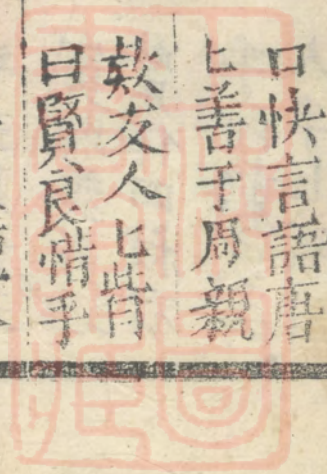 口快言語唐
匕善于周親
欵友人匕皆
曰賢良情乎